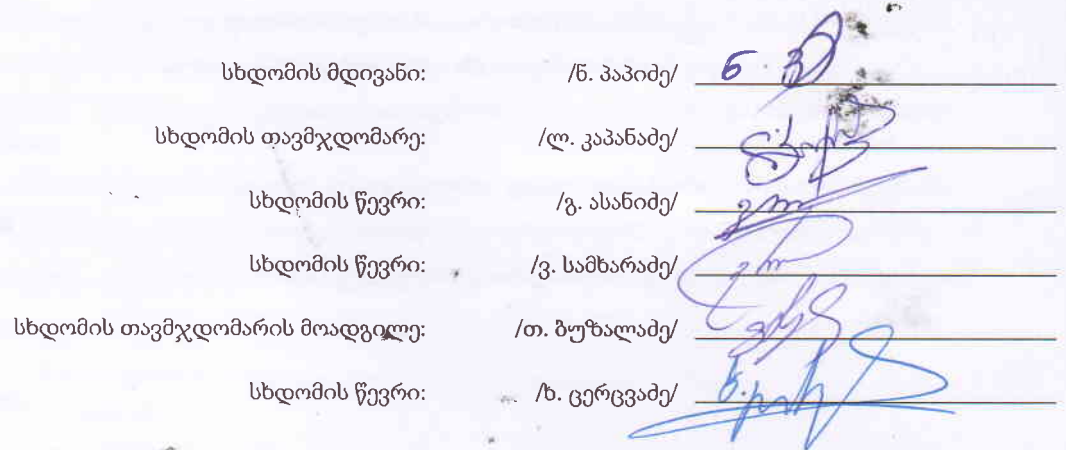 სხდომის მდივანი: /ნ. პაპიძე/ ნ. პ
სხდომის თავმჯდომარე: /ლ. კაპანაძე/
სხდომის წევრი: /გ. ასანიძე/
სხდომის წევრი: /ვ. სამხარაძე/
სხდომის თავმჯდომარის მოადგილე: /თ. ბუზალაძე/
სხდომის წევრი: /ხ. ცერცვაძე/